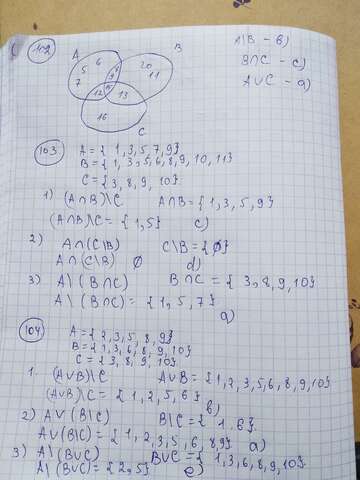 102
A
B
6
5
7
20
11
12
13
16
C
A\B - b)
B∩C - c)
A∪C - a)
103
A = { 1, 3, 5, 7, 9}
B = { 1, 3, 5, 6, 8, 9, 10, 11}
C = { 3, 8, 9, 10}
1) (A∩B)\C A∩B = { 1, 3, 5, 9}
(A∩B)\C = { 1, 5} c)
2) A∩(C\B) C\B = {∅}
A∩(C\B) ∅ d)
3) A\(B∩C) B∩C = { 3, 8, 9, 10}
A\(B∩C) = { 1, 5, 7} a)
104
A = { 2, 3, 5, 8, 9}
B = { 1, 3, 6, 8, 9, 10}
C = { 3, 8, 9, 10}
1. (A∪B)\C A∪B = { 1, 2, 3, 5, 6, 8, 9, 10}
(A∪B)\C = { 1, 2, 5, 6} b)
2) A∪(B\C) B\C = { 1, 6}
A∪(B\C) = { 1, 2, 3, 5, 6, 8, 9} a)
3) A\(B∪C) B∪C = { 1, 3, 6, 8, 9, 10}
A\(B∪C) = { 2, 5} e)